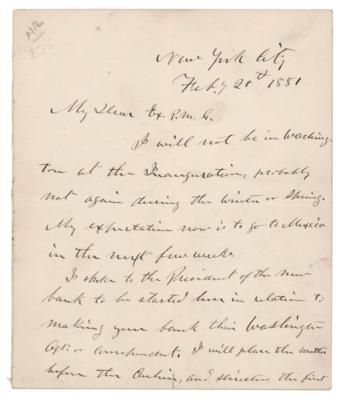 New York City
Feb'y 20th 1881
My Dear Ex. P.M.G.
I will not be in Washing-
ton at the Inauguration, probably
not again during the winter or Spring.
My expectation now is to go to Mexico
in the next few weeks.
I spoke to the President of the new
bank to be started here in relation to
making your bank their Washington
Agt. or correspondent. I will place the matter
before the Cashier, and directors, the first